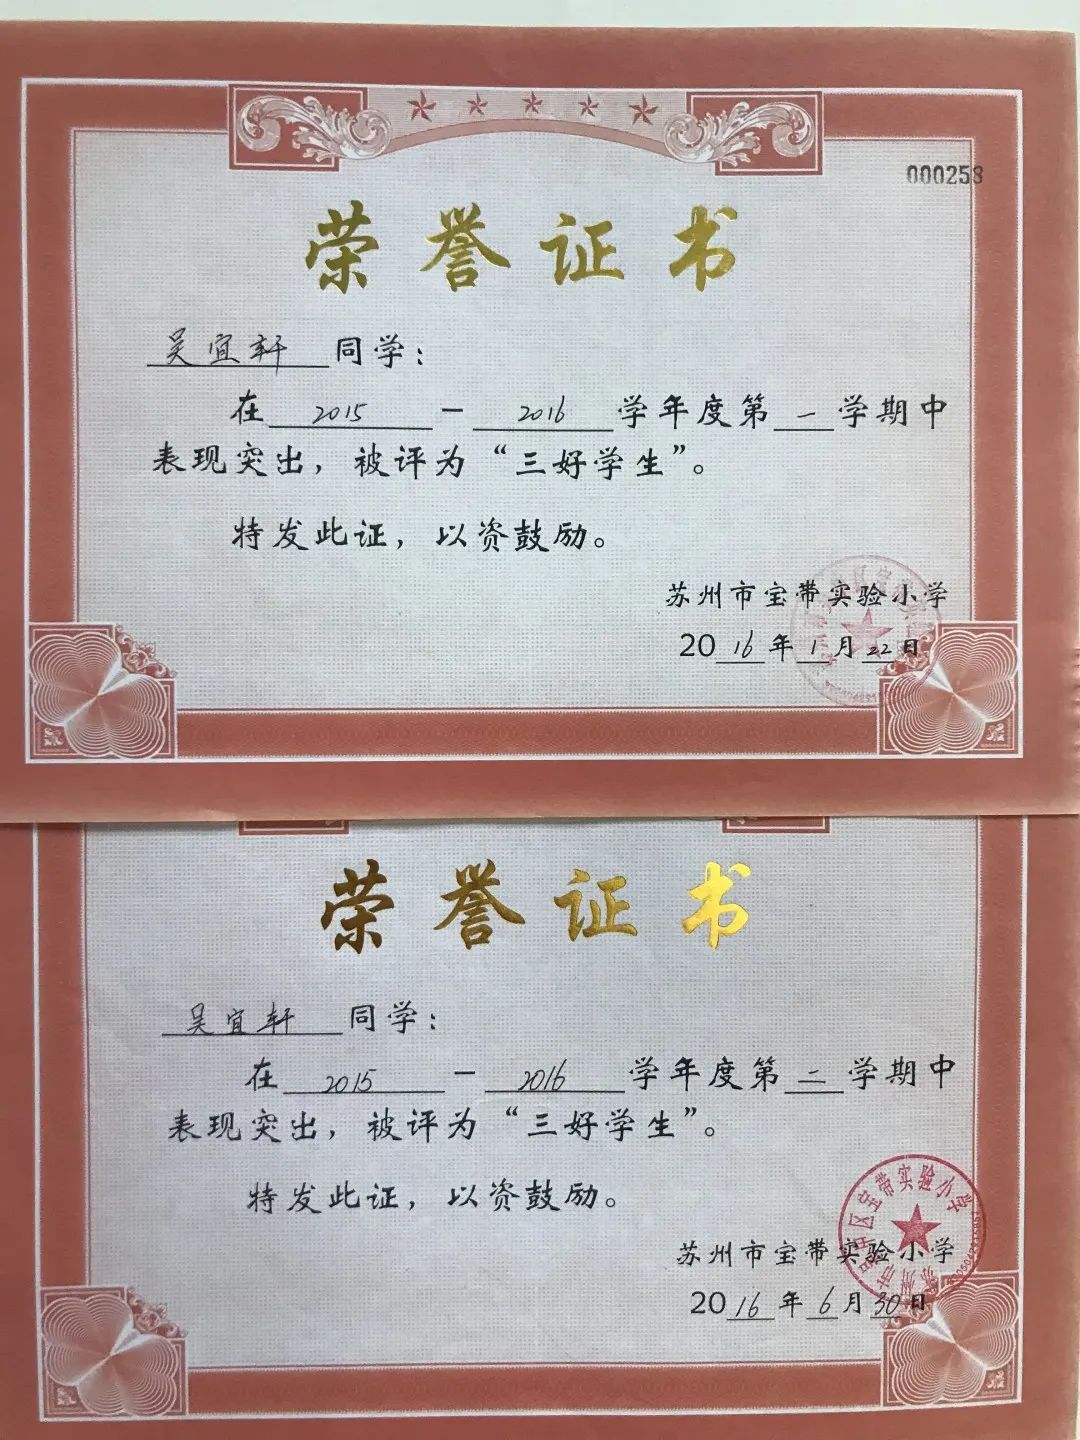 000258
荣誉证书
吴宜轩 同学：
在 2015 － 2016 学年度第 一 学期中
表现突出，被评为“三好学生”。
特发此证，以资鼓励。
苏州市宝带实验小学
2016年1月22日
荣誉证书
吴宜轩 同学：
在 2015 － 2016 学年度第 二 学期中
表现突出，被评为“三好学生”。
特发此证，以资鼓励。
苏州市吴中区宝带实验小学
苏州市宝带实验小学
2016年6月30日